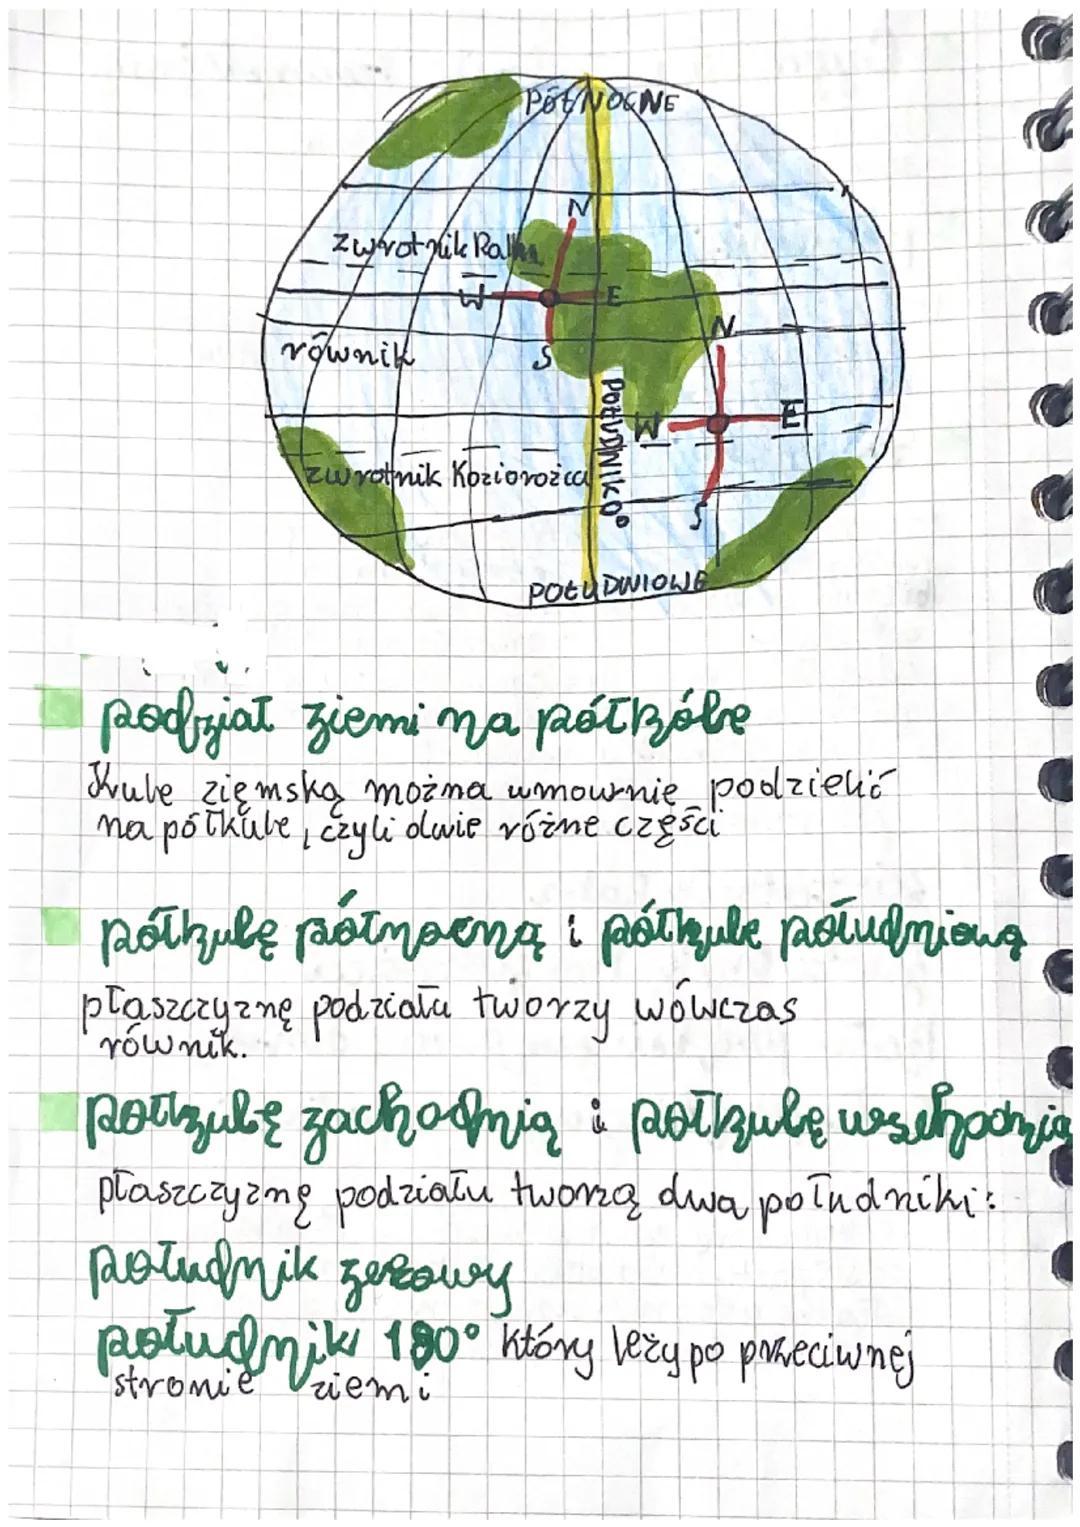 PÓŁNOCNE
N
zwrotnik Raka
W E
równik
S
N
POŁUDNIK 0°
W E
zwrotnik Koziorożca
S
POŁUDNIOWE
podział ziemi na półkóle
Kule zięmską można umownie podzielić
na półkule, czyli dwie różne części
półkulę północną i półkule południową
płaszczyznę podziału tworzy wówczas
równik.
półkulę zachodnią i półkulę wschodnią
płaszczyznę podziału tworzą dwa południki:
południk zerowy
południk 180° który leży po przeciwnej
stronie ziemi